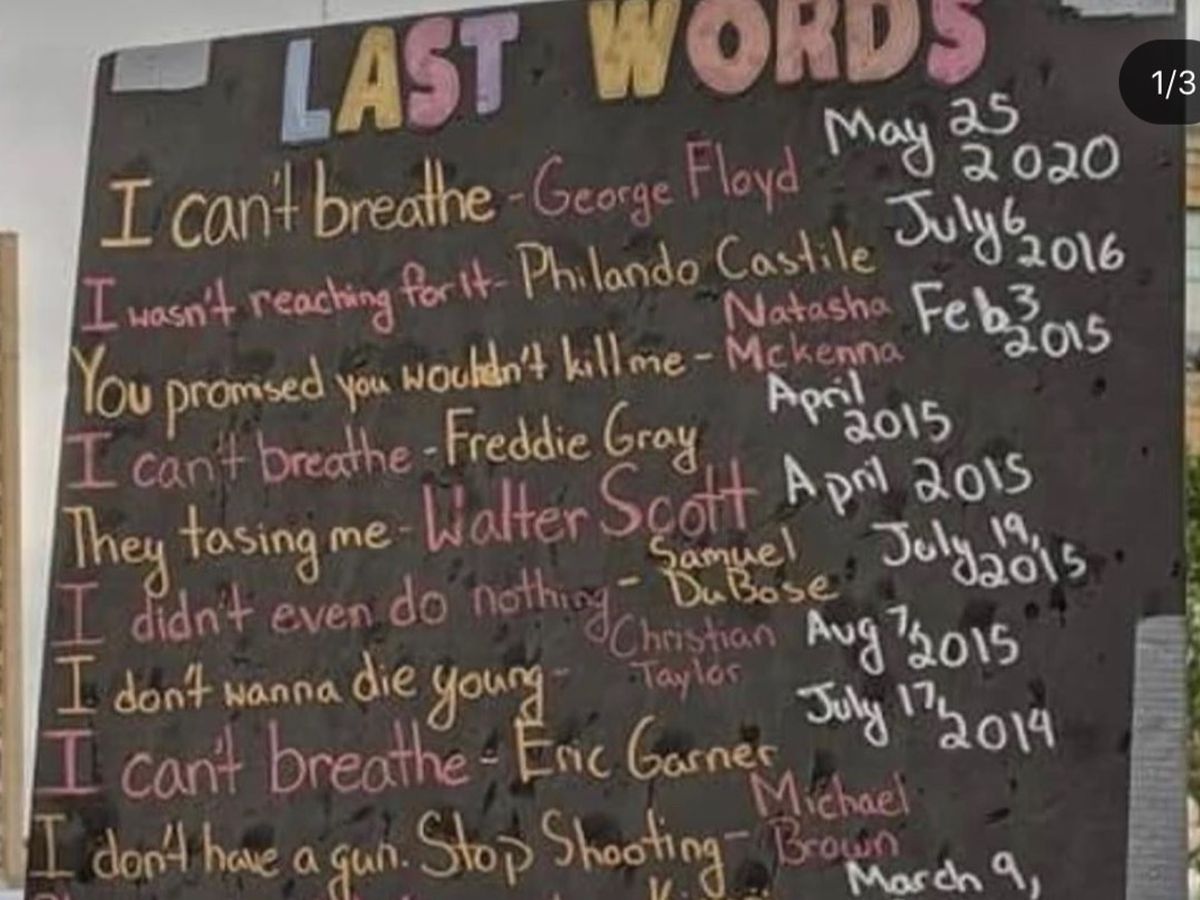 LAST WORDS
1/3
I can't breathe - George Floyd May 25 2020
I wasn't reaching for it - Philando Castile July 6, 2016
You promised you wouldn't kill me - Natasha Mckenna Feb 3 2015
I can't breathe - Freddie Gray April 2015
They tasing me - Walter Scott April 2015
I didn't even do nothing - Samuel DuBose July 19, 2015
I don't wanna die young - Christian Taylor Aug 7, 2015
I can't breathe - Eric Garner July 17, 2014
I don't have a gun. Stop Shooting - Michael Brown
March 9,